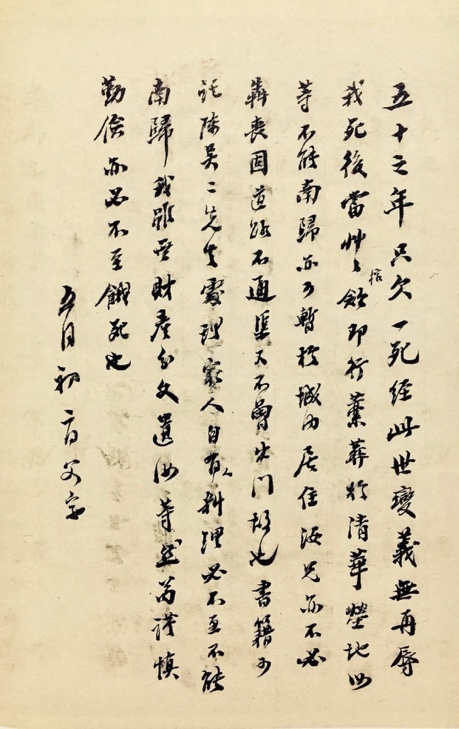 五十之年只欠一死經此世變義無再辱
我死後當艸艸棺斂即行藁葬於清華塋地汝
等不能南歸亦可暫於城內居住汝兄亦不必
犇喪因道路不通渠又不曾出門故也書籍可
託陳吳二先生處理家人自有人料理必不至不能
南歸我雖無財產分文遺汝等然苟謹慎
勤儉亦必不至餓死也
五月初二日父字